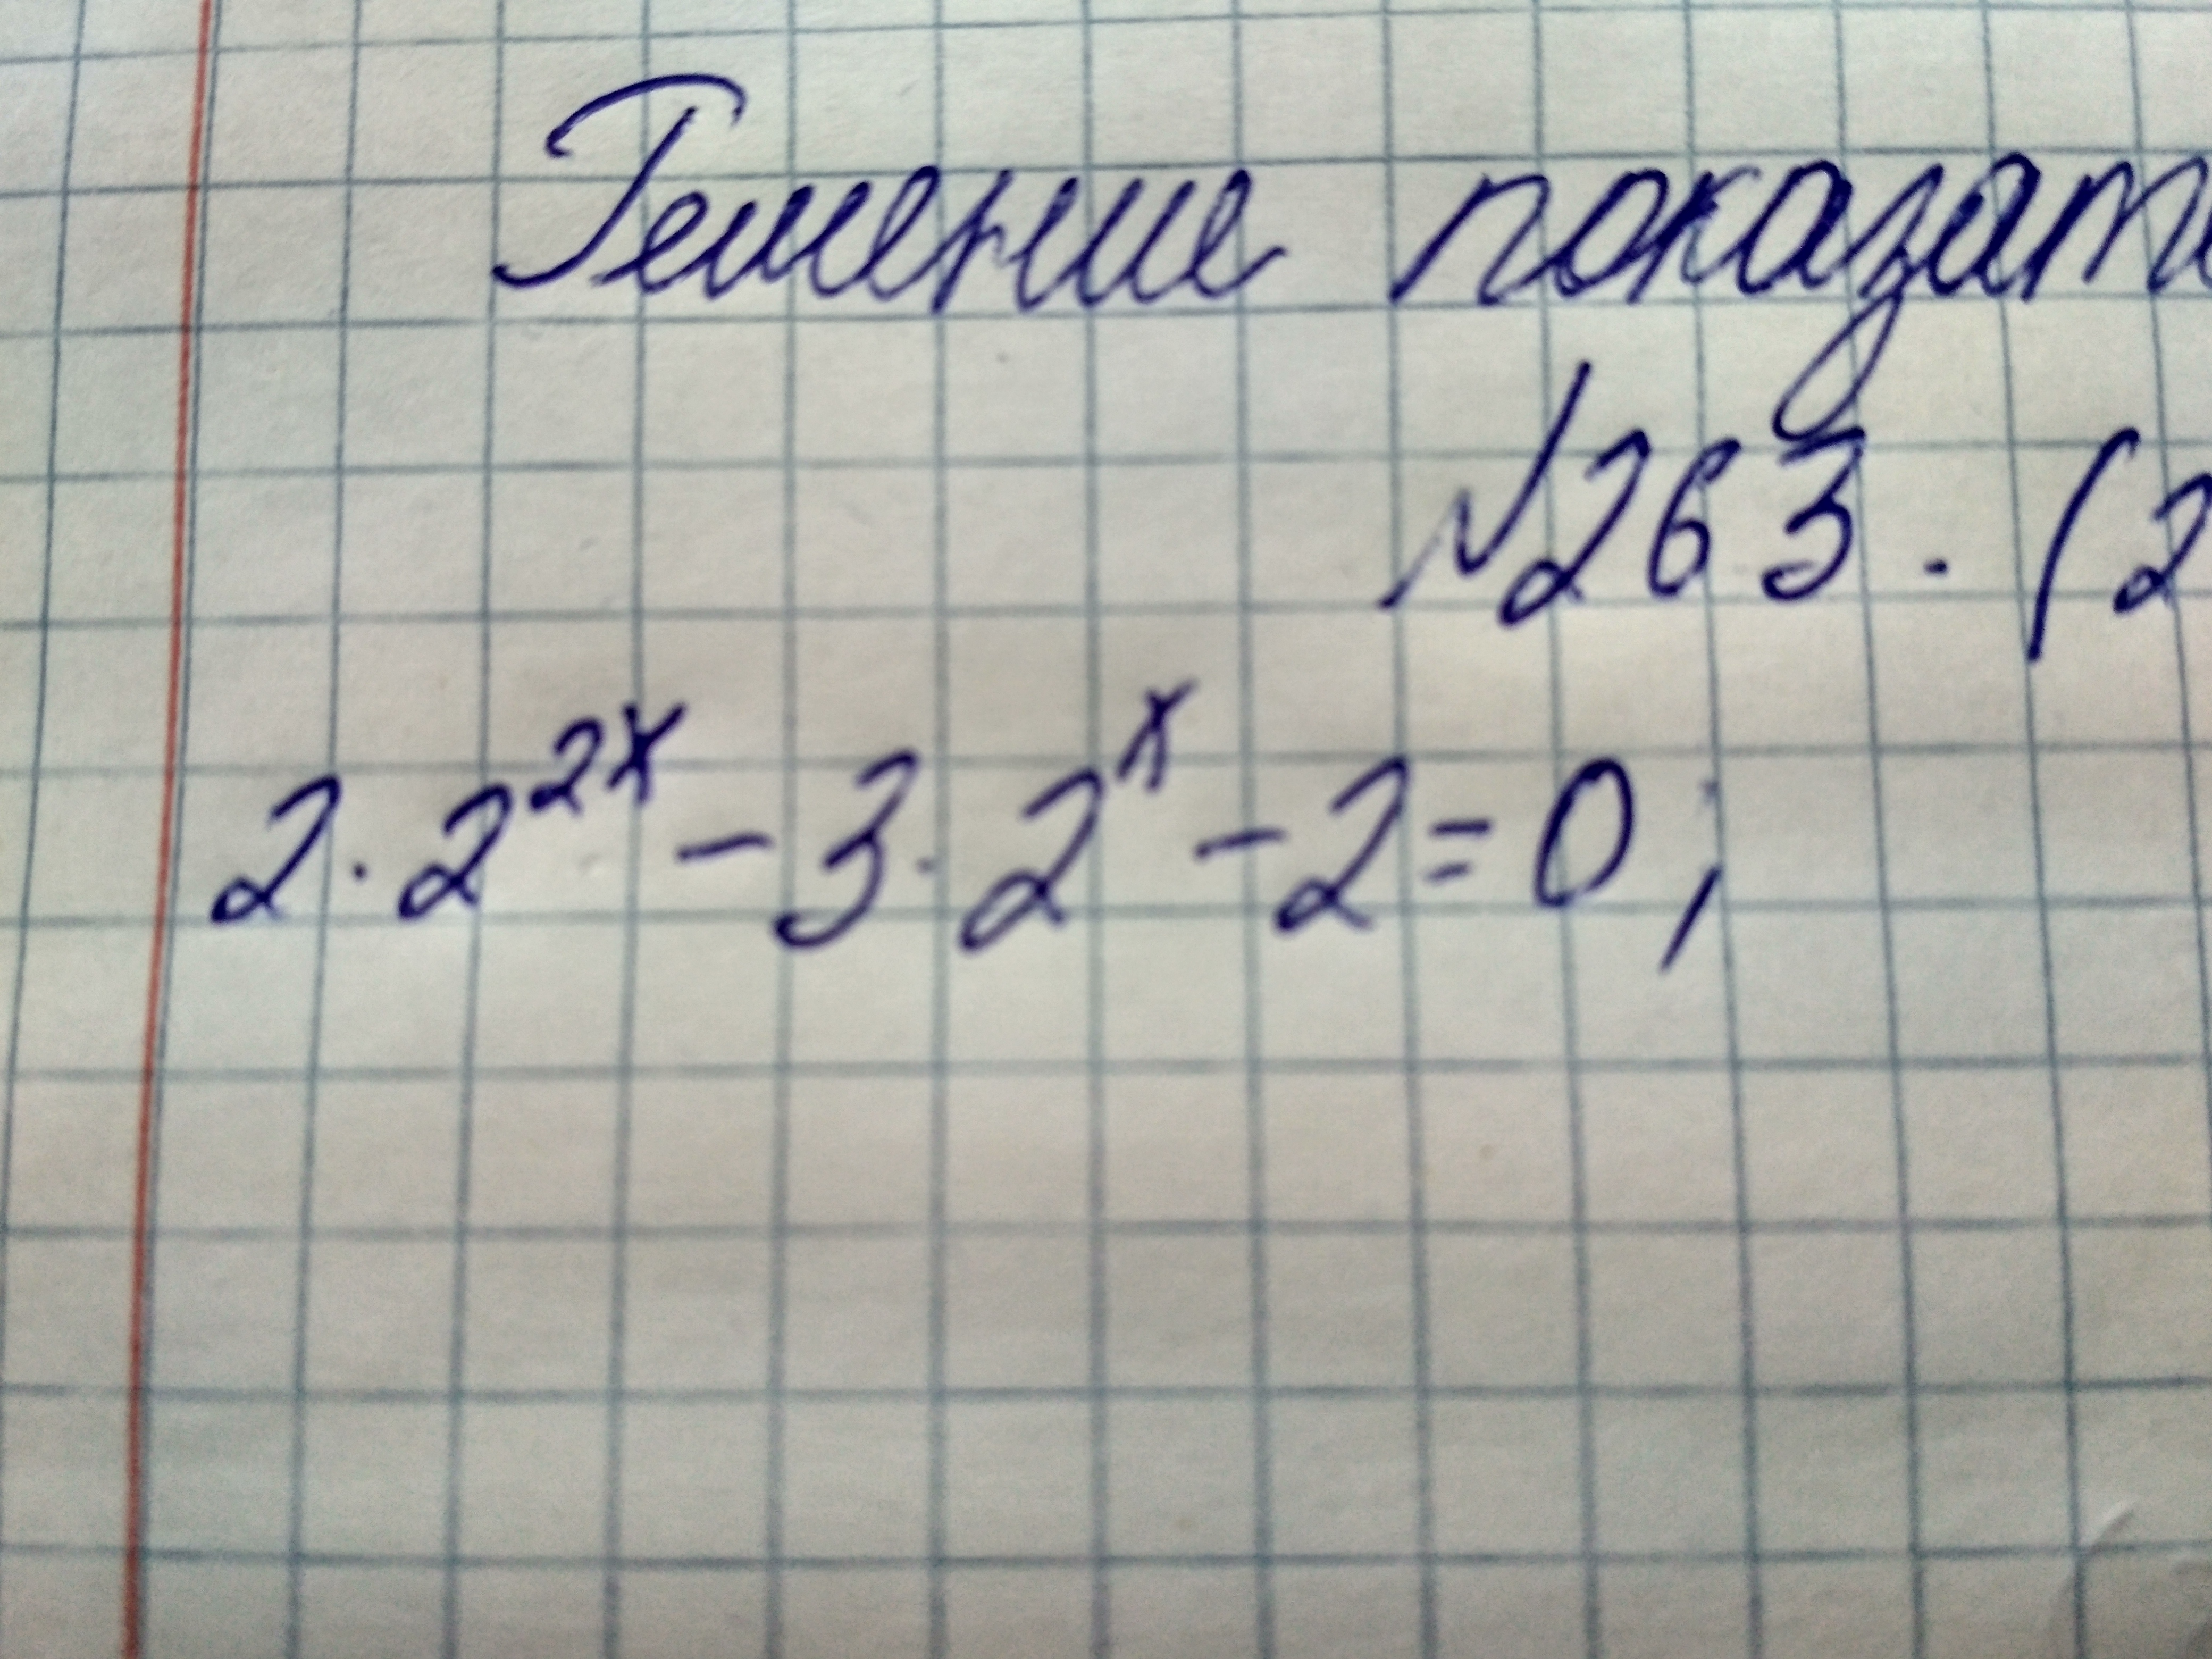 Решение показат
№263. (2
2·2^{2x} - 3·2^x - 2 = 0;